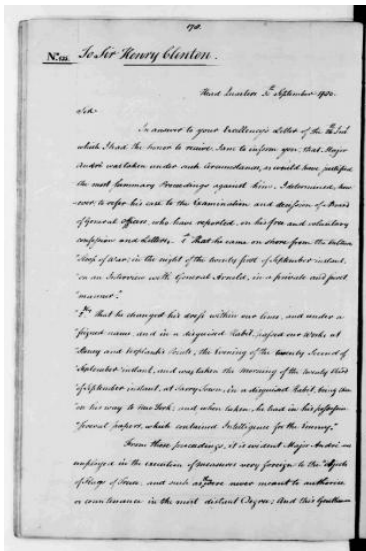 170.
No. To Sir Henry Clinton.
Head Quarters 30th September 1780.
Sir
In answer to your Excellency's Letter of the 26th Inst
which I had the honor to receive, I am to inform you, that Major
André was taken under such Circumstances, as would have justified
the most Summary Proceedings against him. I determined, how-
ever, to refer his case to the Examination and decision of a Board
of General officers, who have reported, on his free and voluntary
confession and Letters. 1st That he came on shore from the Vulture
Sloop of War, in the night of the twenty first of September instant,
"on an Interview with General Arnold, in a private and secret
"manner."
that he changed his dress within our lines, and under a
feigned name, and in a disguised habit, passed our Works at
Stoney and Verplanks Points, the Evening of the twenty Second of
September instant, and was taken the Morning of the twenty third
of September instant, at Tarry Town, in a disguised Habit, being then
on his way to New York; and when taken, he had in his possession
"several papers, which contained Intelligence for the Enemy."
From these proceedings, it is evident Major André was
employed in the execution of measures very foreign to the Objects
of Flags of Truce, and such as were never meant to authorise
or countenance in the most distant Degree; And this Gentleman